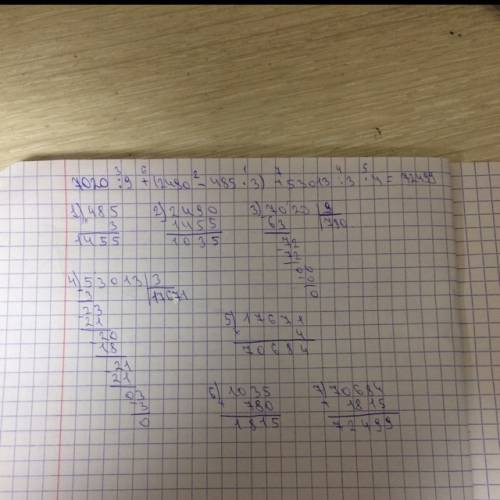 7020 : 9 + (2490 - 485 · 3) + 53013 : 3 · 4 = 72499
1) 485 2) 2490 3) 7020 9
3 1455 63 780
1455 1035 72
72
00
0
0
4) 53013 3
3 17671
23
21
20
18
21
21
03
3
0
5) 17671
4
70684
6) 1035 7) 70684
780 1815
1815 72499